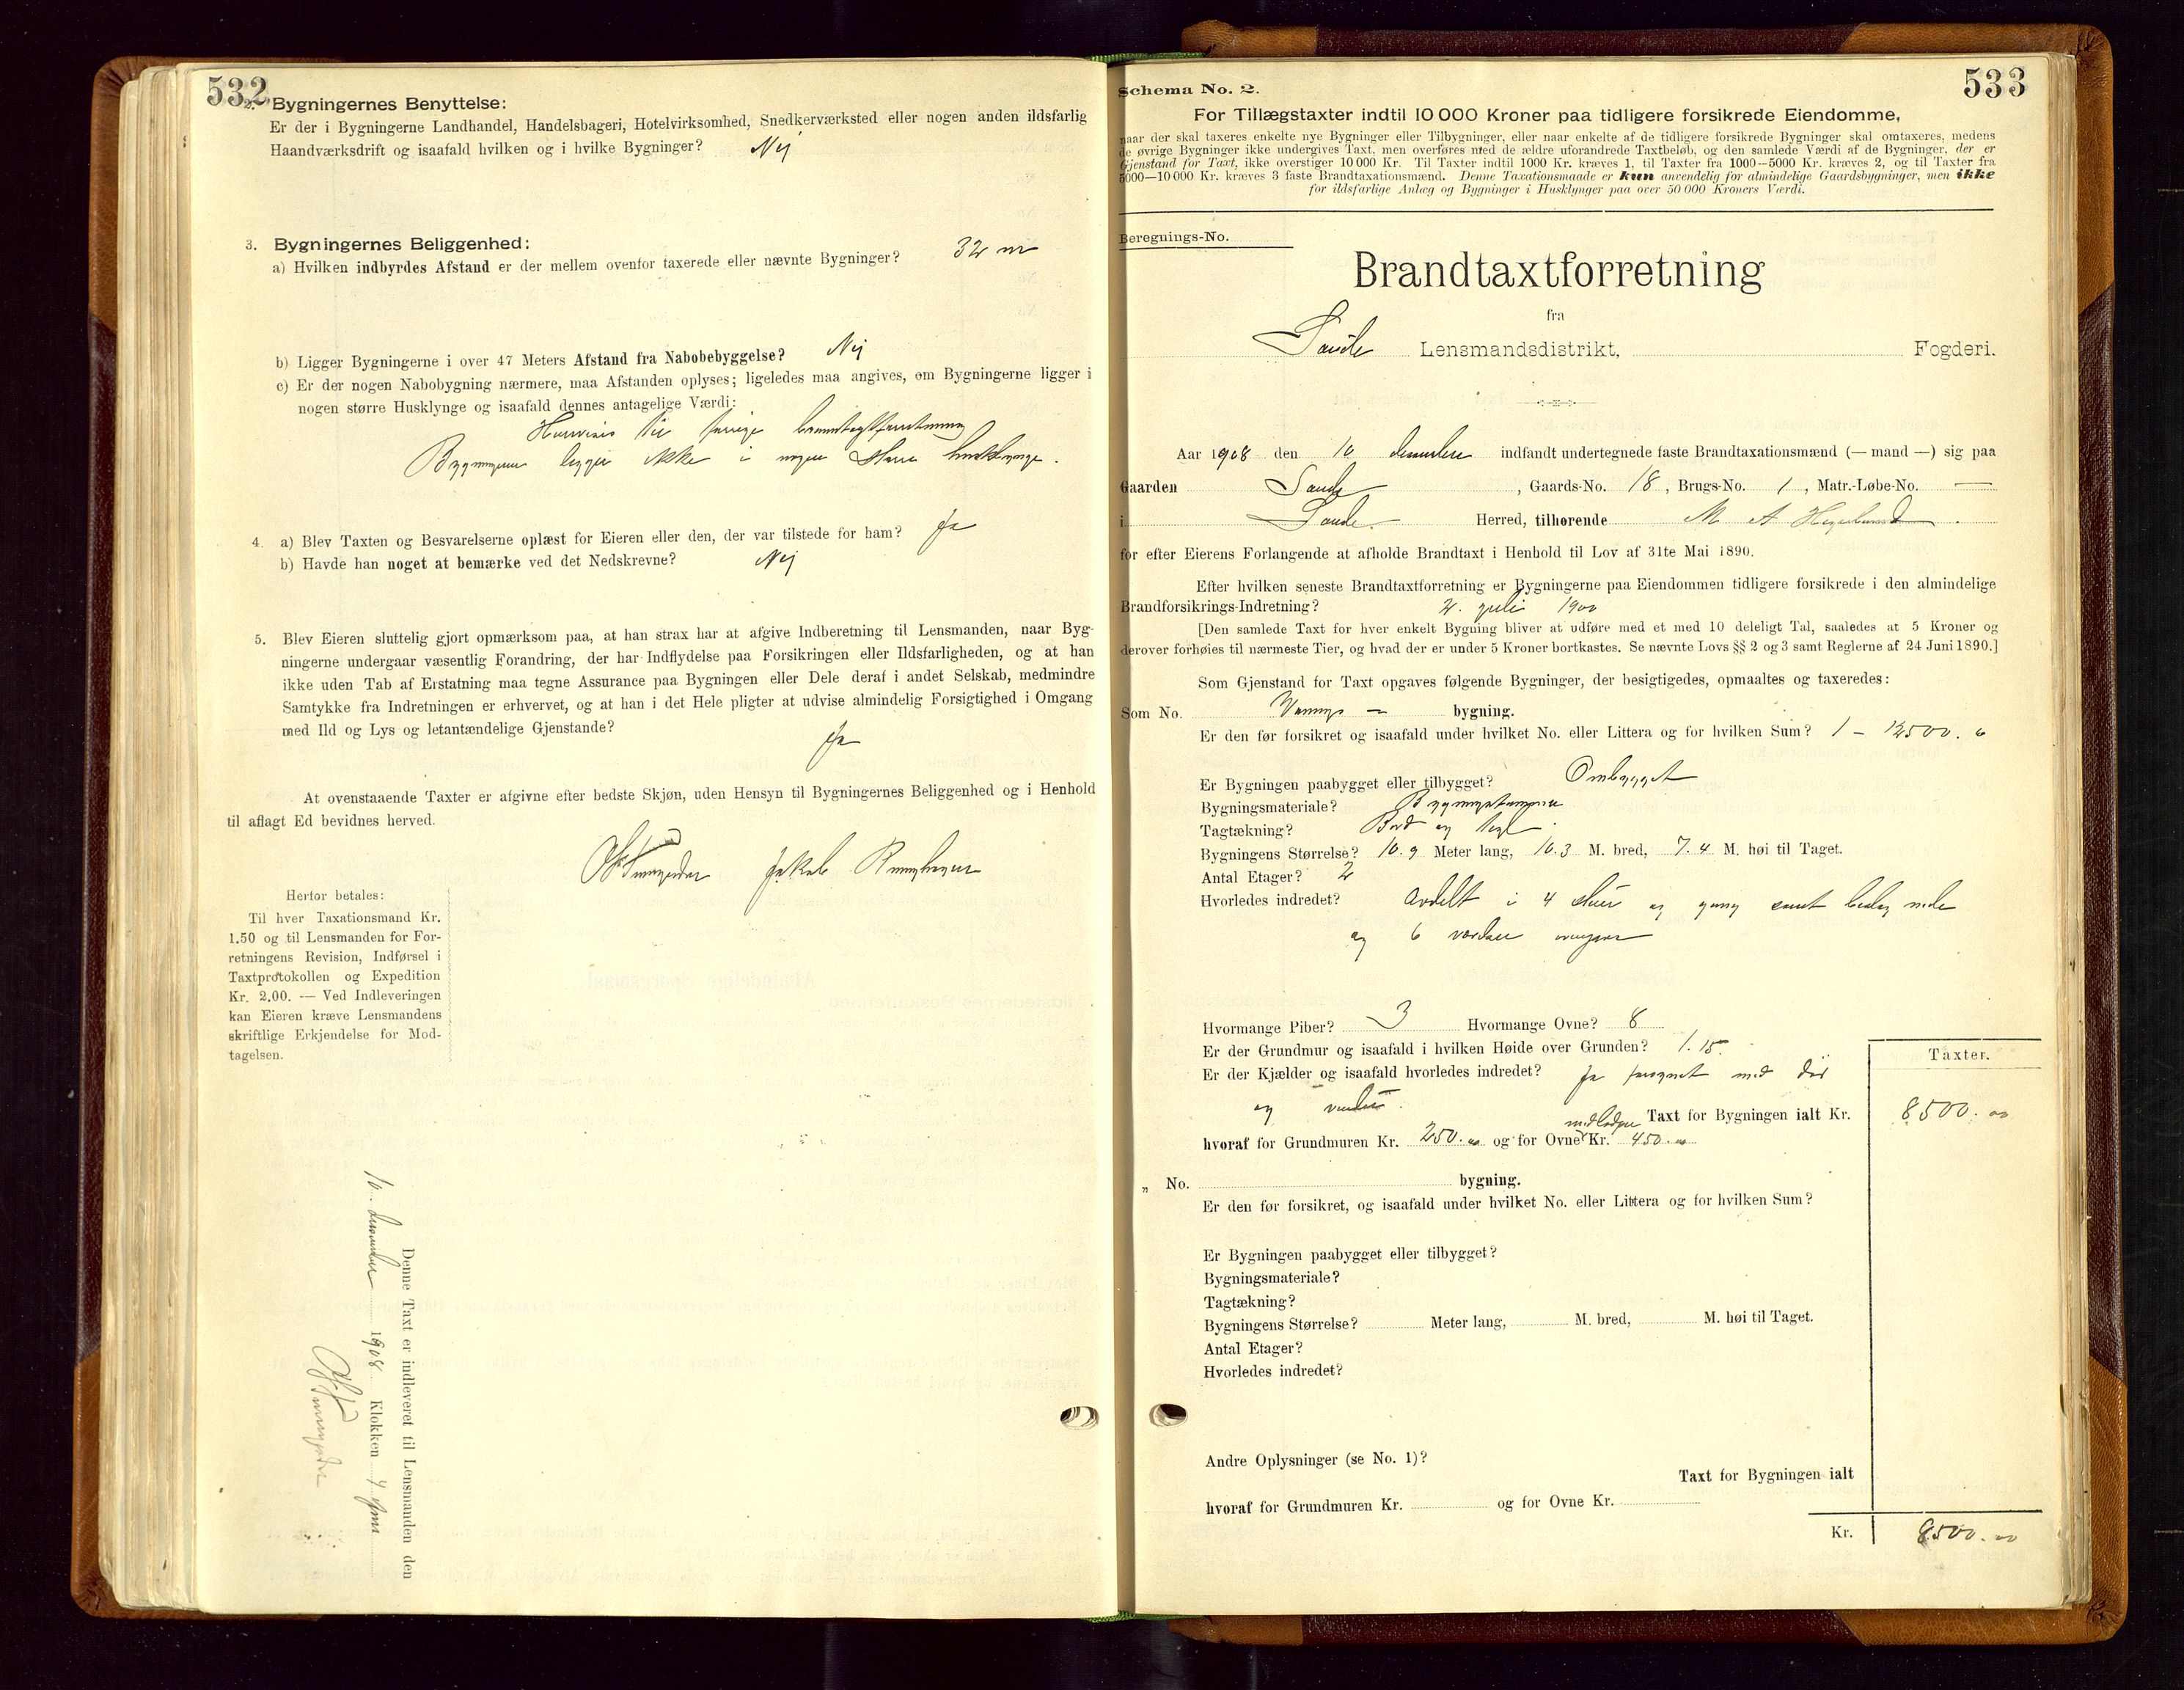 532
2. Bygningernes Benyttelse:
Er der i Bygningerne Landhandel, Handelsbageri, Hotelvirksomhed, Snedkerværksted eller nogen anden ildsfarlig
Haandværksdrift og isaafald hvilken og i hvilke Bygninger? Nei
3. Bygningernes Beliggenhed:
a) Hvilken indbyrdes Afstand er der mellem ovenfor taxerede eller nævnte Bygninger? 32 m
b) Ligger Bygningerne i over 47 Meters Afstand fra Nabobebyggelse? Nei
c) Er der nogen Nabobygning nærmere, maa Afstanden oplyses; ligeledes maa angives, om Bygningerne ligger i
nogen større Husklynge og isaafald dennes antagelige Værdi:
Henvises til forrige brandtaxtforretning
Bygningerne ligger ikke i nogen større husklynge.
4. a) Blev Taxten og Besvarelserne oplæst for Eieren eller den, der var tilstede for ham? Ja
b) Havde han noget at bemærke ved det Nedskrevne? Nei
5. Blev Eieren sluttelig gjort opmærksom paa, at han strax har at afgive Indberetning til Lensmanden, naar Byg-
ningerne undergaar væsentlig Forandring, der har Indflydelse paa Forsikringen eller Ildsfarligheden, og at han
ikke uden Tab af Erstatning maa tegne Assurance paa Bygningen eller Dele deraf i andet Selskab, medmindre
Samtykke fra Indretningen er erhvervet, og at han i det Hele pligter at udvise almindelig Forsigtighed i Omgang
med Ild og Lys og letantændelige Gjenstande? Ja
At ovenstaaende Taxter er afgivne efter bedste Skjøn, uden Hensyn til Bygningernes Beliggenhed og i Henhold
til aflagt Ed bevidnes herved.
Jakob
Herfor betales:
Til hver Taxationsmand Kr.
1.50 og til Lensmanden for For-
retningens Revision, Indførsel i
Taxtprotokollen og Expedition
Kr. 2.00. — Ved Indleveringen
kan Eieren kræve Lensmandens
skriftlige Erkjendelse for Mod-
tagelsen.
Denne Taxt er indleveret til Lensmanden den
10. december 1908 Klokken 4
533
Schema No. 2.
For Tillægstaxter indtil 10 000 Kroner paa tidligere forsikrede Eiendomme,
naar der skal taxeres enkelte nye Bygninger eller Tilbygninger, eller naar enkelte af de tidligere forsikrede Bygninger skal omtaxeres, medens
de øvrige Bygninger ikke undergives Taxt, men overføres med de ældre uforandrede Taxtbeløb, og den samlede Værdi af de Bygninger, der er
Gjenstand for Taxt, ikke overstiger 10 000 Kr. Til Taxter indtil 1000 Kr. kræves 1, til Taxter fra 1000—5000 Kr. kræves 2, og til Taxter fra
5000—10 000 Kr. kræves 3 faste Brandtaxationsmænd. Denne Taxationsmaade er kun anvendelig for almindelige Gaardsbygninger, men ikke
for ildsfarlige Anlæg og Bygninger i Husklynger paa over 50 000 Kroners Værdi.
Beregnings-No.
Brandtaxtforretning
fra
Saude Lensmandsdistrikt, Fogderi.
Aar 1908 den 10 december indfandt undertegnede faste Brandtaxationsmænd (— mand —) sig paa
Gaarden Saude, Gaards-No. 18, Brugs-No. 1, Matr.-Løbe-No. —
i Saude Herred, tilhørende M A
for efter Eierens Forlangende at afholde Brandtaxt i Henhold til Lov af 31te Mai 1890.
Efter hvilken seneste Brandtaxtforretning er Bygningerne paa Eiendommen tidligere forsikrede i den almindelige
Brandforsikrings-Indretning? 2. juli 1900
[Den samlede Taxt for hver enkelt Bygning bliver at udføre med et med 10 deleligt Tal, saaledes at 5 Kroner og
derover forhøies til nærmeste Tier, og hvad der er under 5 Kroner bortkastes. Se nævnte Lovs §§ 2 og 3 samt Reglerne af 24 Juni 1890.]
Som Gjenstand for Taxt opgaves følgende Bygninger, der besigtigedes, opmaaltes og taxeredes:
Som No. Vaanings — bygning.
Er den før forsikret og isaafald under hvilket No. eller Littera og for hvilken Sum? 1 —
Er Bygningen paabygget eller tilbygget? Ombygget
Bygningsmateriale? Bygningstømmer
Tagtækning? Bord og tegl.
Bygningens Størrelse? 10.9 Meter lang, 10.3 M. bred, 7.4 M. høi til Taget.
Antal Etager? 2
Hvorledes indredet? Avdelt i 4 stuer og gang samt nede
og 6 værelser ovenpaa
Hvormange Piber? 3 Hvormange Ovne? 8
Er der Grundmur og isaafald i hvilken Høide over Grunden? 1.15
Er der Kjælder og isaafald hvorledes indredet? Ja forsynet med dør
og vinduer.
Taxter.
Taxt for Bygningen ialt Kr. 8500.00
hvoraf for Grundmuren Kr. 250.00 og for Ovne Kr. 450.00
„ No. bygning.
Er den før forsikret, og isaafald under hvilket No. eller Littera og for hvilken Sum?
Er Bygningen paabygget eller tilbygget?
Bygningsmateriale?
Tagtækning?
Bygningens Størrelse? Meter lang, M. bred, M. høi til Taget.
Antal Etager?
Hvorledes indredet?
Andre Oplysninger (se No. 1)?
Taxt for Bygningen ialt
hvoraf for Grundmuren Kr. og for Ovne Kr.
Kr. 8500.00